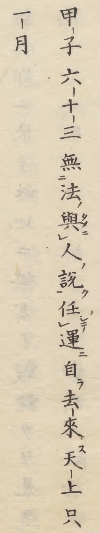 甲子六十三無法與人說任運自去來天上只
一月